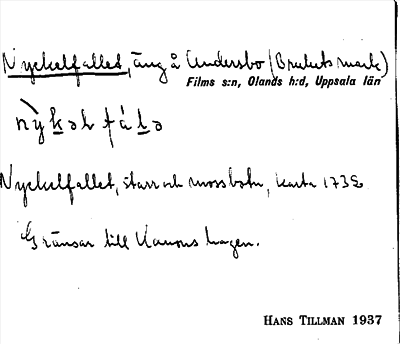 Nyckelfallet, äng å Andersbo (Brukets mark)
Films s:n, Olands h:d, Uppsala län
nỳkəl fálə
Nyckelfallet, starr och mossbotn, karta 1732
Gränsar till Kanons hagen.
HANS TILLMAN 1937